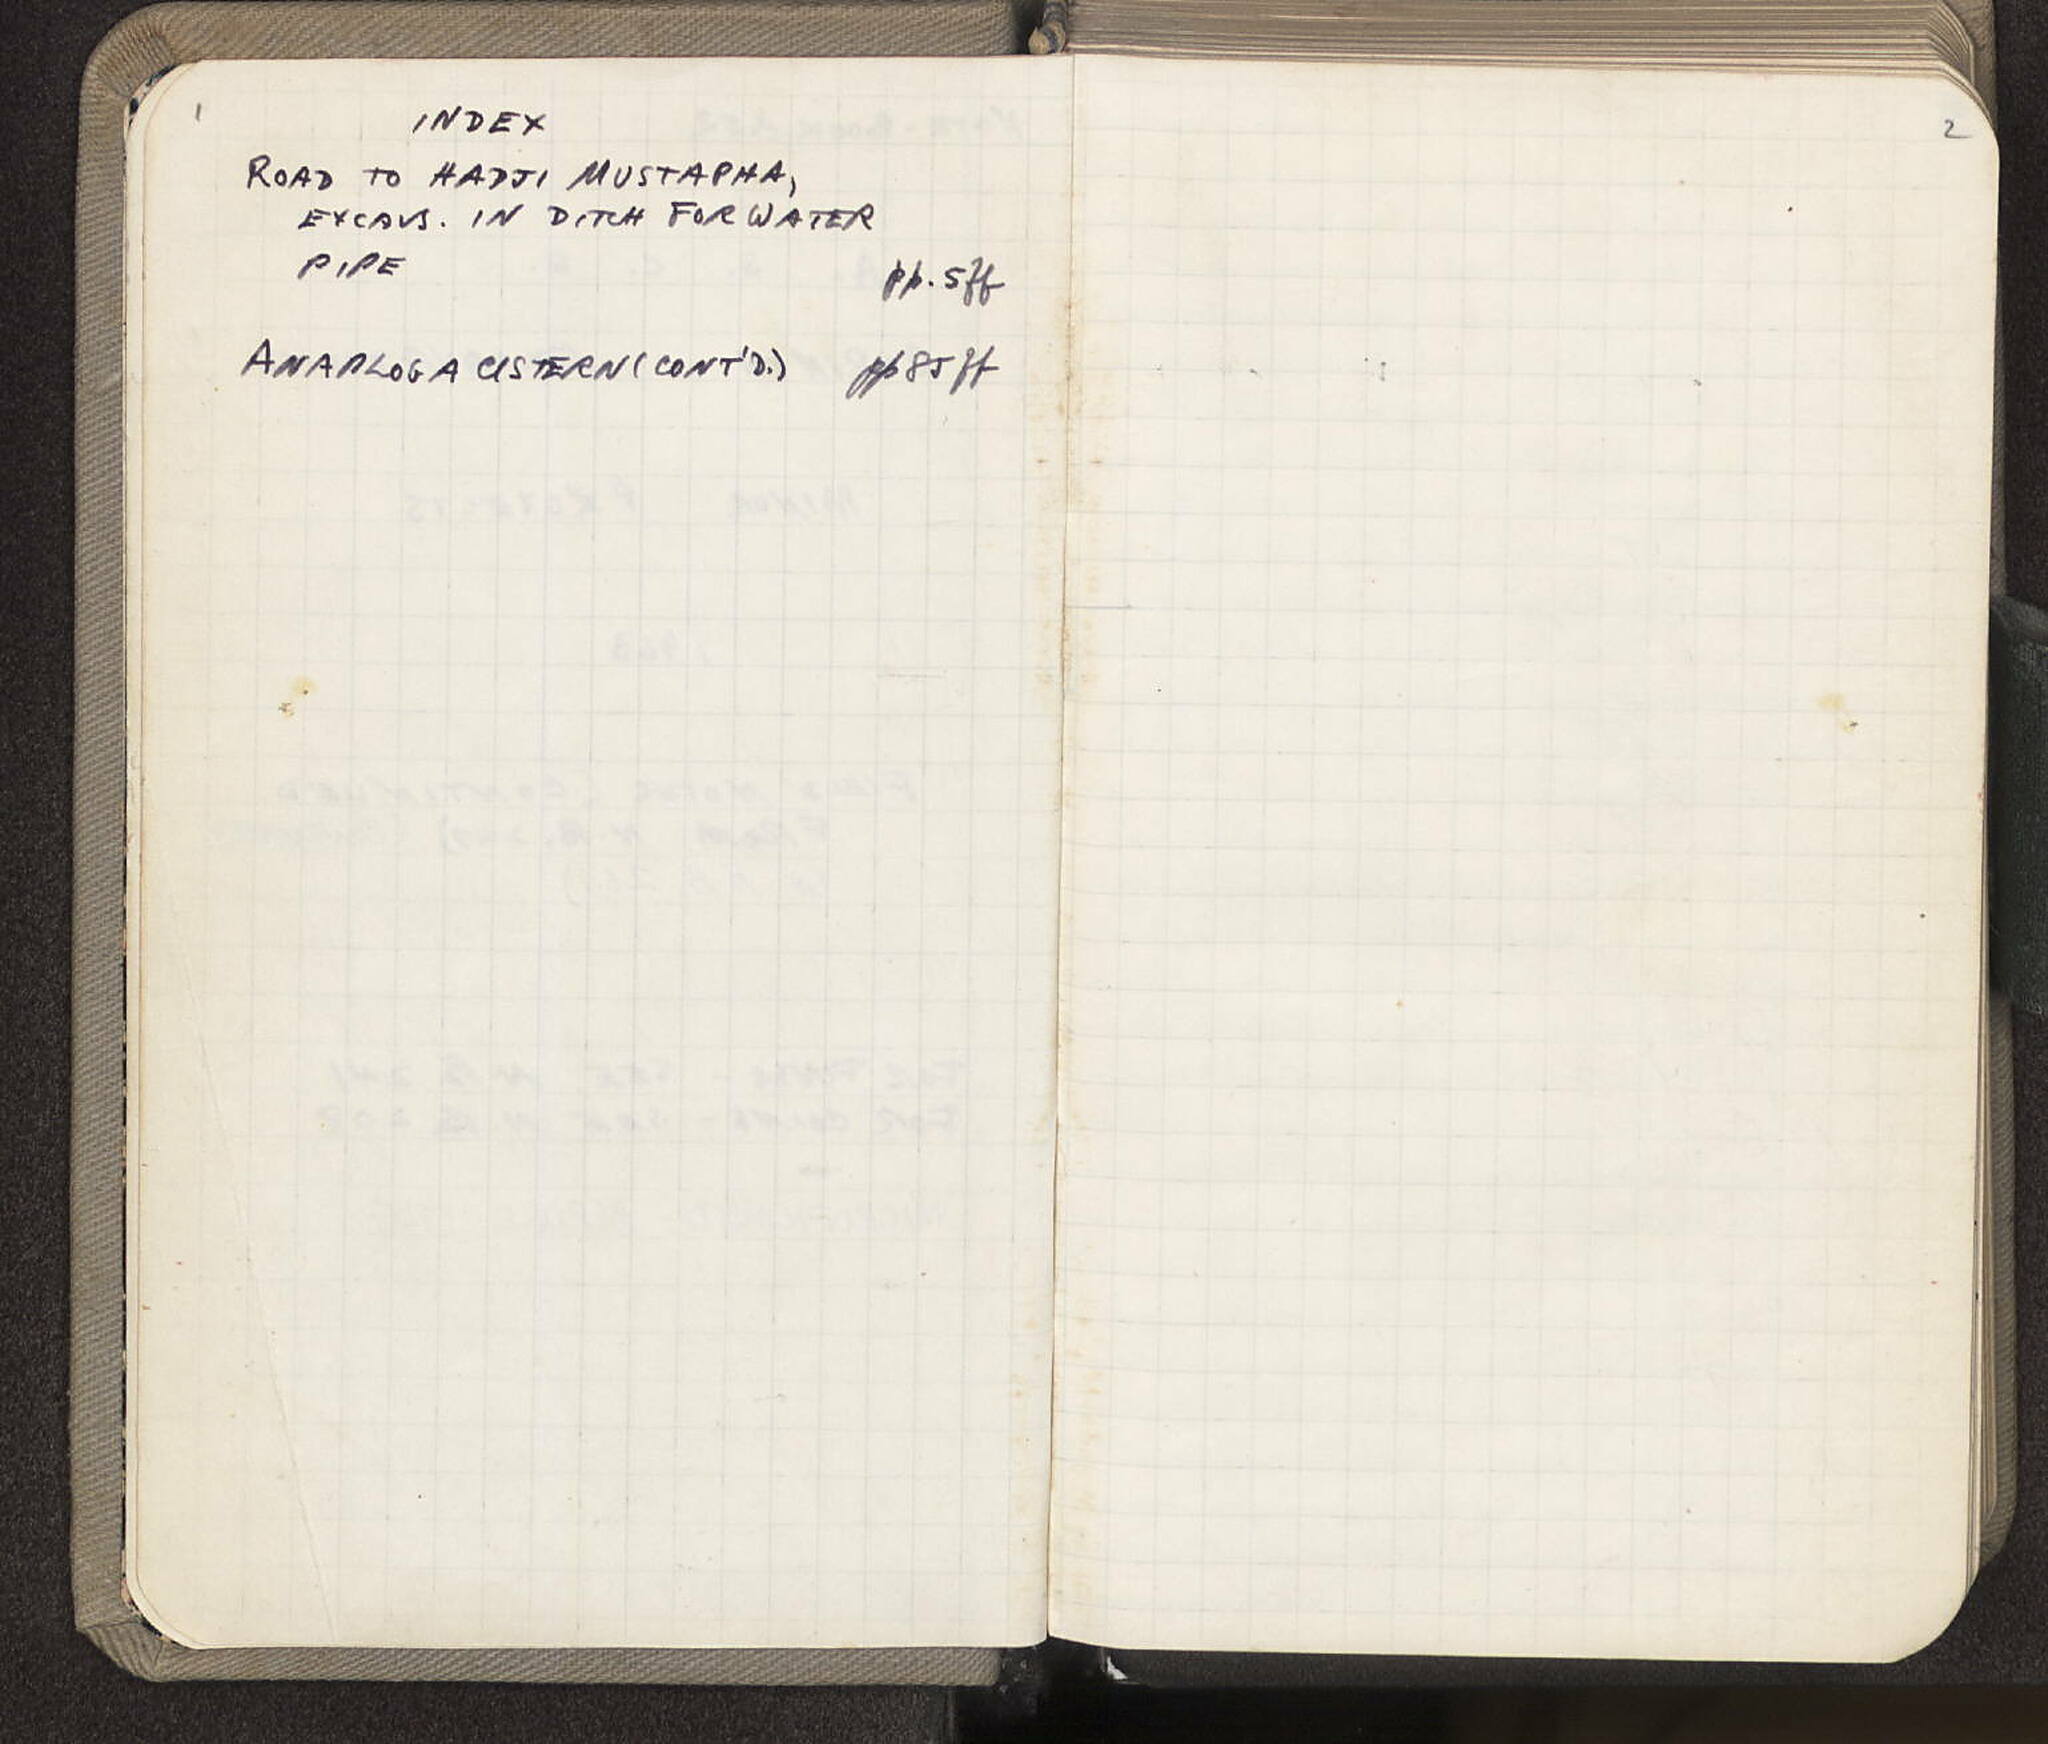 1
INDEX
ROAD TO HADJI MUSTAPHA,
EXCAVS. IN DITCH FOR WATER
PIPE pp. 5ff
ANAPLOGA CISTERN (CONT'D.) pp 85ff
2